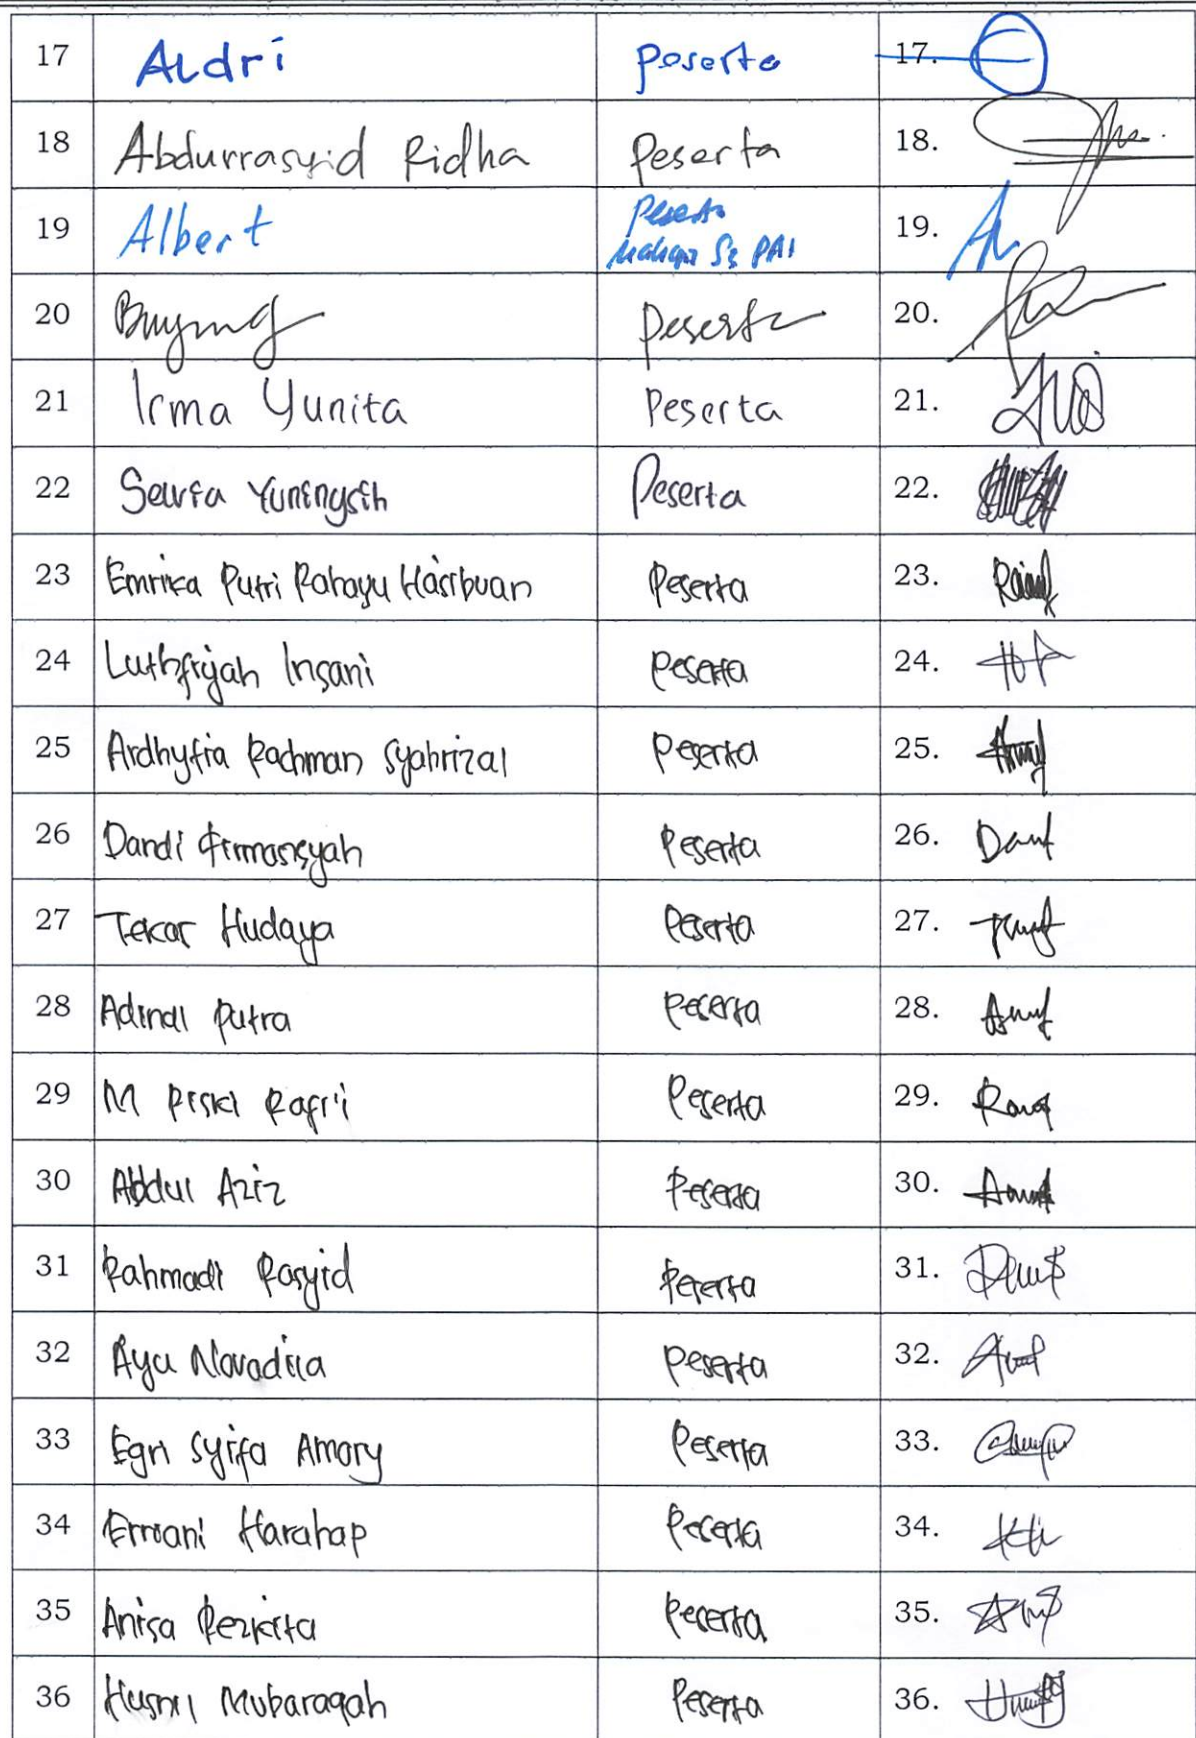 17 Aldri Peserta 17.
18 Abdurrasyid Ridha Peserta 18.
19 Albert Peserta 19.
S3 PAI
20 Buyung Peserta 20.
21 Irma Yunita Peserta 21.
22 Yuningsih Peserta 22.
23 Emrika Putri Rahayu Hasibuan Peserta 23.
24 Luthfiyah Insani Peserta 24.
25 Ardhyfia Rachman Syahrizal Peserta 25.
26 Dandi Firmansyah Peserta 26.
27 Tekar Hudaya Peserta 27.
28 Adinal Putra Peserta 28.
29 M Riski Rafi'i Peserta 29.
30 Abdul Aziz Peserta 30.
31 Rahmadi Rasyid Peserta 31.
32 Ayu Novadila Peserta 32.
33 Egri Syifa Amory Peserta 33.
34 Erniani Harahap Peserta 34.
35 Anisa Rezkita Peserta 35.
36 Husnil Mubaraqah Peserta 36.